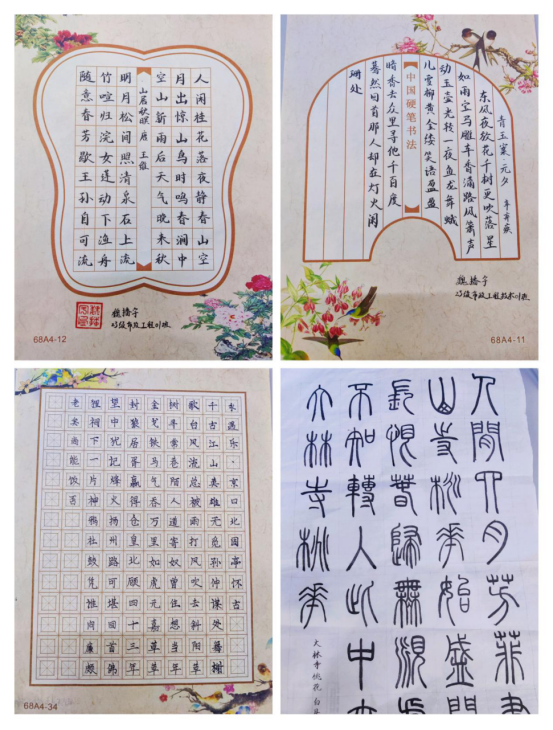 人闲桂花落夜静春山空
月出惊山鸟时鸣春涧中
空山新雨后天气晚来秋
山居秋暝 唐 王维
明月松间照清泉石上流
竹喧归浣女莲动下渔舟
随意春芳歇王孙自可流
23级市政工程01班
68A4-12
青玉案·元夕 辛弃疾
东风夜放花千树更吹落星
如雨宝马雕车香满路凤箫声
动玉壶光转一夜鱼龙舞蛾
儿雪柳黄金缕笑语盈盈
中国硬笔书法
暗香去众里寻他千百度
蓦然回首那人却在灯火阑
珊处
68A4-11
永遇乐·京口北固亭怀古
千古江山英雄无觅孙仲谋处舞榭
歌台风流总被雨打风吹去斜阳草
树寻常巷陌人道寄奴曾住想当年
金戈铁马气吞万里如虎元嘉草草
封狼居胥赢得仓皇北顾四十三年
望中犹记烽火扬州路可堪回首佛
狸祠下一片神鸦社鼓凭谁问廉颇
老矣尚能饭否
68A4-34
人間四月芳菲
山寺桃花始盛開
長恨春歸無覓
不知轉入此中
大林寺桃花
大林寺桃花 白